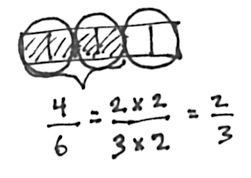 4/6 = 2 × 2/3 × 2 = 2/3